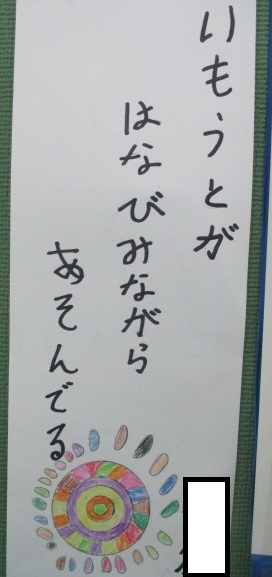 いもうとが
はなびみながら
あそんでる